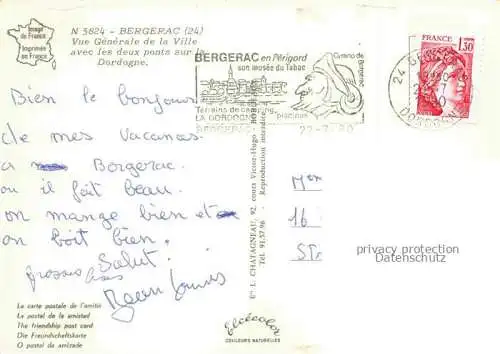 Image
de France
Imprimée
en France
N 5824 - BERGERAC (24)
Vue Générale de la Ville
avec les deux ponts sur la
Dordogne.
BERGERAC en Périgord
son musée du Tabac
Cyrano de Bergerac
Terrains de camping
LA DORDOGNE
BERGERAC
22-7 80
FRANCE
1,30
24 BERGERAC
DORDOGNE
Bien le bonjour
de mes Vacances
a Bergerac.
ou il fait beau.
on mange bien et
on boit bien.
Salut.
Gros
16
privacy protection
DARMSTADT
Ets L. CHATAGNEAU, 92, cours Victor-Hugo - BORDEAUX
Tél. 91.57.96 - Reproduction interdite
La carte postale de l'amitié
La postal de la amistad
The friendship post card
Die Freundschaftskarte
O postal da amizade
Elcécolor
COULEURS NATURELLES